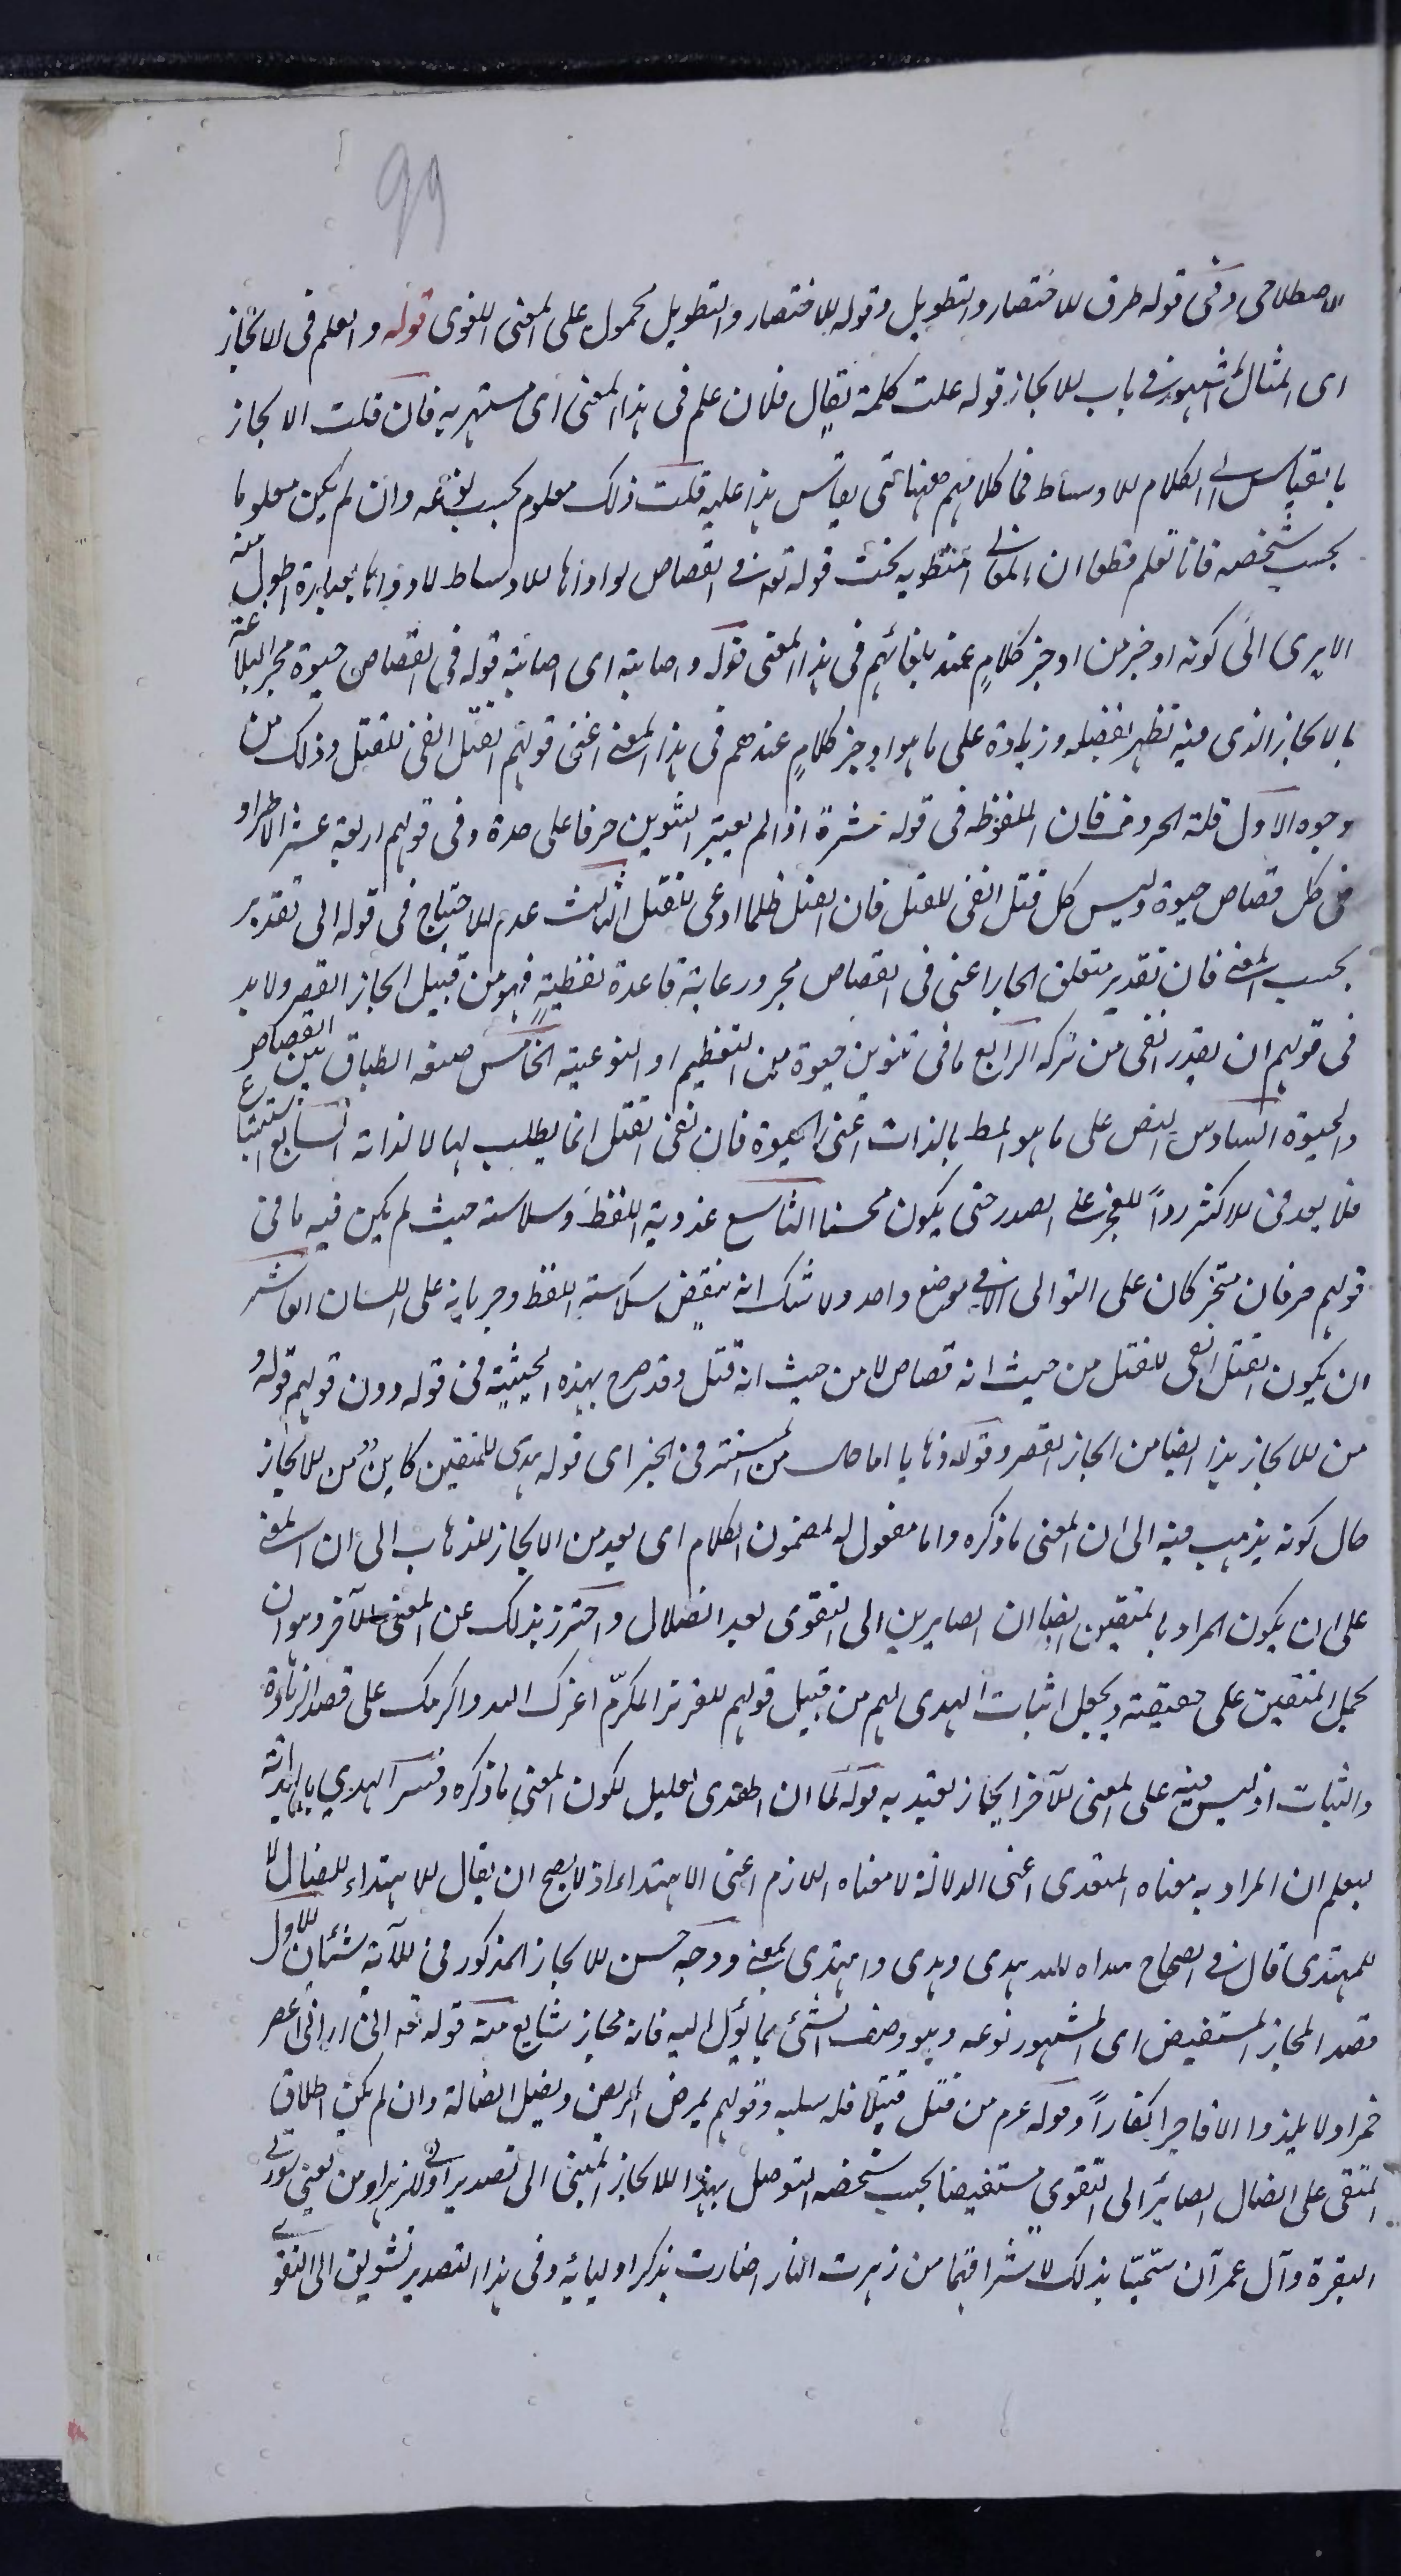 99
الاصطلاحى وفى قوله طرق للاختصار والتطويل وقوله للاختصار والتطويل محمول على المعنى اللغوى قوله والعلم فى الايجاز
اى المثال المشهور فى باب الايجاز قوله علت كلمة يقال فلان علم فى هذا المعنى اى مشتهر به فان قلت الايجاز
بالقياس الى الكلام الاوساط فما كلامهم ههنا حتى يقاس هذا عليه قلت ذلك معلوم بحسب نوعه وان لم يكن معلوما
بحسب شخصه فانا نعلم قطعا ان المعانى المنطوية تحت قوله تع فى القصاص لو اداها الاوساط لادوا بعبارة اطول منه
الا يرى الى كونه اوجز من اوجز كلام عند بلغائهم فى هذا المعنى قوله واصابته اى اصابة قوله فى القصاص حيوة محز البلاغة
بالايجاز الذى فيه تظهر بفضله وزيادة على ما هو اوجز كلام عندهم فى هذا المعنى اعنى قولهم القتل انفى للقتل وذلك من
وجوه الاول قلة الحروف فان الملفوظه فى قوله عشرة اذا لم يعتبر التنوين حرفا على حدة وفى قولهم اربعة عشر الاطراد
فى كل قصاص حيوة وليس كل قتل انفى للقتل فان القتل ظلما ادعى للقتل الثالث عدم الاحتياج فى قوله الى تقدير
بحسب المعنى فان تقدير متعلق الجار اعنى فى القصاص مجرد رعاية قاعدة لفظية فهو من قبيل ايجاز القصر ولا بد
فى قولهم ان يقدر انفى من تركه الرابع ما فى تنوين حيوة من التعظيم او النوعية الخامس صنعة الطباق بين القصاص
والحيوة السادس النص على ما هو المط بالذات اعنى الحيوة فان نفى القتل انما يطلب لها لا لذاته السابع
فلا يعد فى الاكثر رداً للعجز على الصدر حتى يكون محسنا التاسع عذوبة اللفظ وسلاسته حيث لم يكن فيه ما فى
قولهم حرفان متحركان على التوالى الا فى موضع واحد ولا شك انه ينقض سلاسة اللفظ وجريانه على اللسان العاشر
ان يكون القتل انفى للقتل من حيث انه قصاص لا من حيث انه قتل وقد صرح بهذه الحيثية فى قوله دون قولهم قوله و
من الايجاز هذا ايضا من ايجاز القصر وقوله ذهابا اما حال من المستتر فى الخبر اى قوله هدى للمتقين كاين من الايجاز
حال كونه يذهب فيه الى ان المعنى ما ذكره واما مفعول له لمضمون الكلام اى يعد من الايجاز للذهاب الى ان المعنى
على ان يكون المراد بالمتقين الصايرين الى التقوى بعد الضلال واحترز بذلك عن المعنى الآخر وهو ان
يحمل المتقين على حقيقته ويجعل اثبات الهدى لهم من قبيل قولهم للعزيز المكرّم اعزك الله واكرمك على قصد الزيادة
والثبات اذ ليس فيه على المعنى الآخر ايجاز يعتد به قوله لما ان الهدى تعليل لكون المعنى ما ذكره وفسر الهدى بالهداية
ليعلم ان المراد به معناه المتعدى اعنى الدلالة لا معناه اللازم اعنى الاهتداء اذ لا يصح ان يقال الاهتداء للضال لا
للمهتدى قال فى الصحاح هداه الله هدى وهدى واهتدى بمعنى ووجه حسن الايجاز المذكور فى الآية شيئان الاول
قصد المجاز المستفيض اى المشهور نوعه وهو وصف الشئ بما يؤل اليه فانه مجاز شايع منه قوله تعه انى ارانى اعصر
خمرا ولا يلدوا الا فاجرا كفاراً وقوله عم من قتل قتيلا فله سلبه وقولهم يمرض المريض ويضل الضالة وان لم يكن اطلاق
المتقى على الضال الصائر الى التقوى مستفيضا بحسب شخصه التوصل بهذا الايجاز المبنى الى تصدير اولى الزهراوين يعنى سورتى
البقرة وآل عمران سمّيتا بذلك لاشراقهما من زهرت النار اضاءت بذكر اوليائه وفى هذا التصدير تشويق الى التقوى